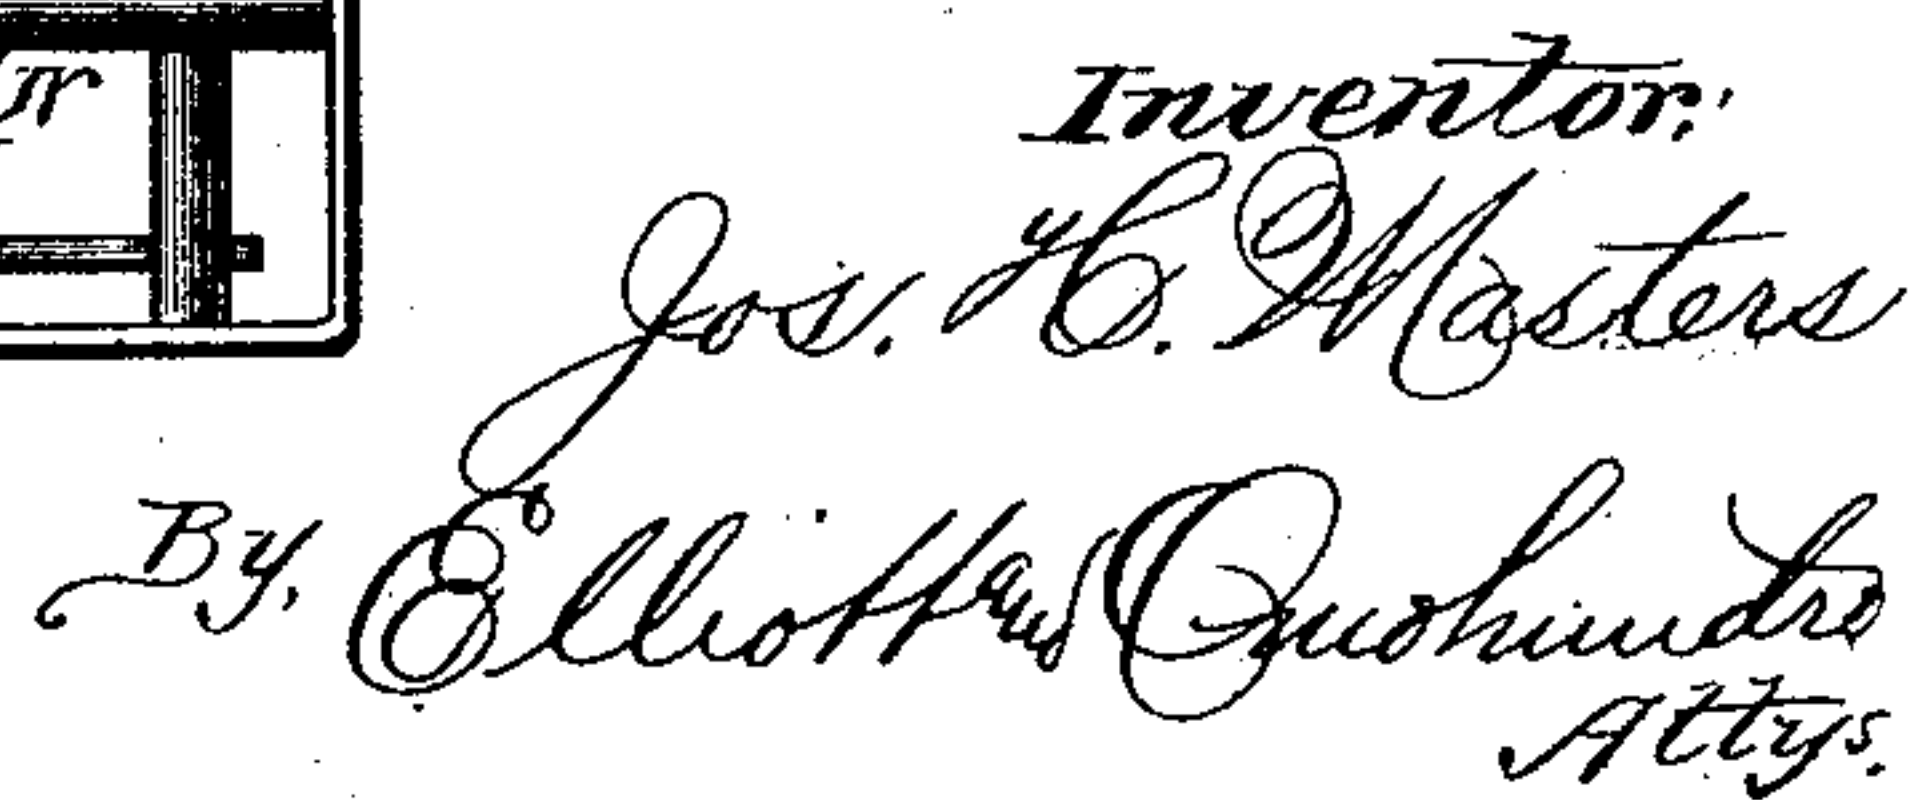 Inventor:
Jos. H. Masters
By,
Elliott and
Attys.